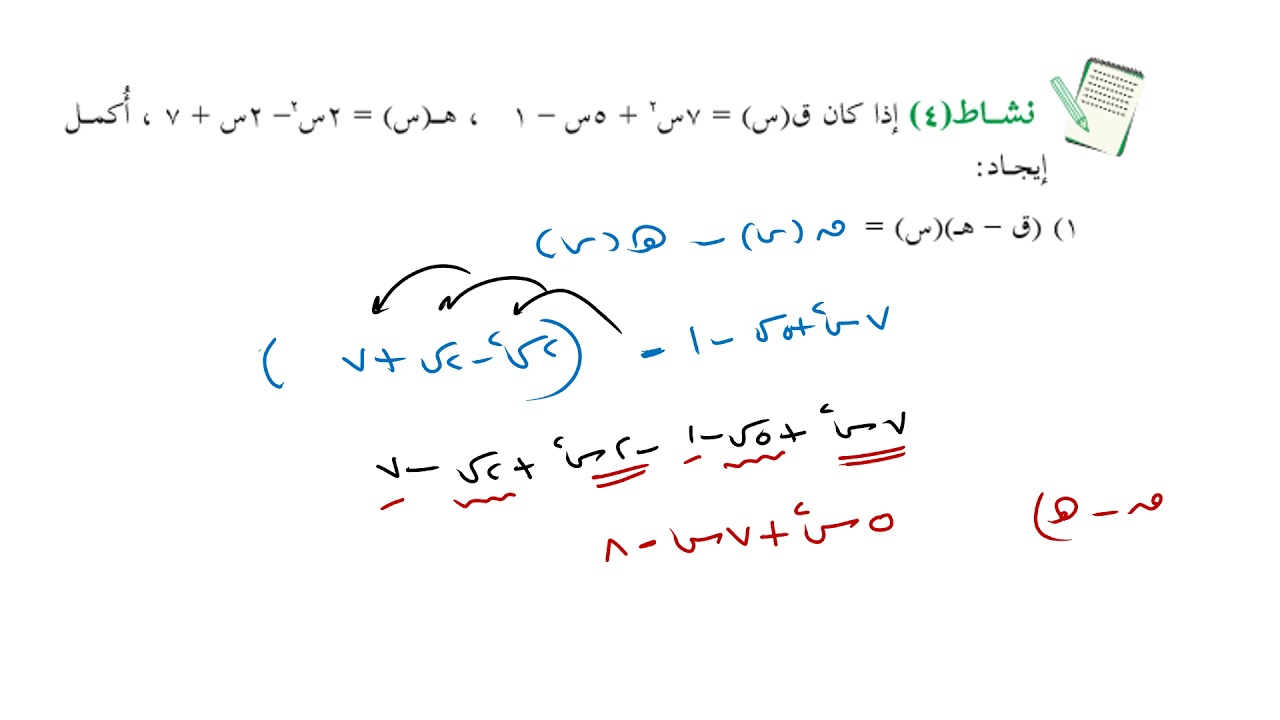 نشاط(٤) إذا كان ق(س) = ٧س٢ + ٥س − ١ ، هـ(س) = ٢س٢ − ٢س + ٧ ، أُكمل
إيجاد:
١) (ق − هـ)(س) = ق(س) − هـ(س)
٧س٢ + ٥س − ١ − (٢س٢ − ٢س + ٧)
٧س٢ + ٥س − ١ − ٢س٢ + ٢س − ٧
ق − هـ) ٥س٢ + ٧س − ٨